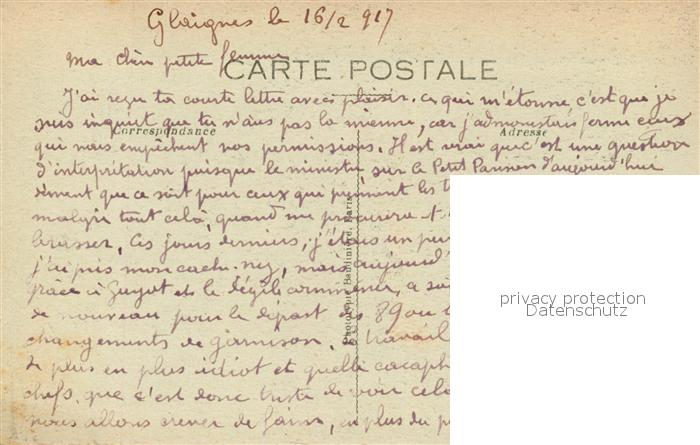 Glaignes le 16/2 917
Ma chère petite femme
CARTE POSTALE
J'ai reçu ta courte lettre avec plaisir. ce qui m'étonne, c'est que je
suis inquiet que tu n'aies pas la mienne, car j'admonestais ferme ceux
Correspondance
Adresse
qui nous empêchent nos permissions. Il est vrai que c'est une question
d'interprétation puisque le ministre sur le Petit Parisien d'aujourd'hui
dément que ce soit pour ceux qui prennent les
malgré tout celà, quand me procurera t
brasser. Ces jours derniers, j'étais un peu
j'ai pris mon cache-nez, mais aujourd'
grâce à Zuyot et le dégel commence, a
de nouveau pour le départ des 89 ou
changements de garnison. travail
de plus en plus idiot et quelle
chefs, que c'est donc triste de voir cela
nous allons crever de faim, en plus du
Phototypie Baudinière, Paris
privacy protection
Datenschutz